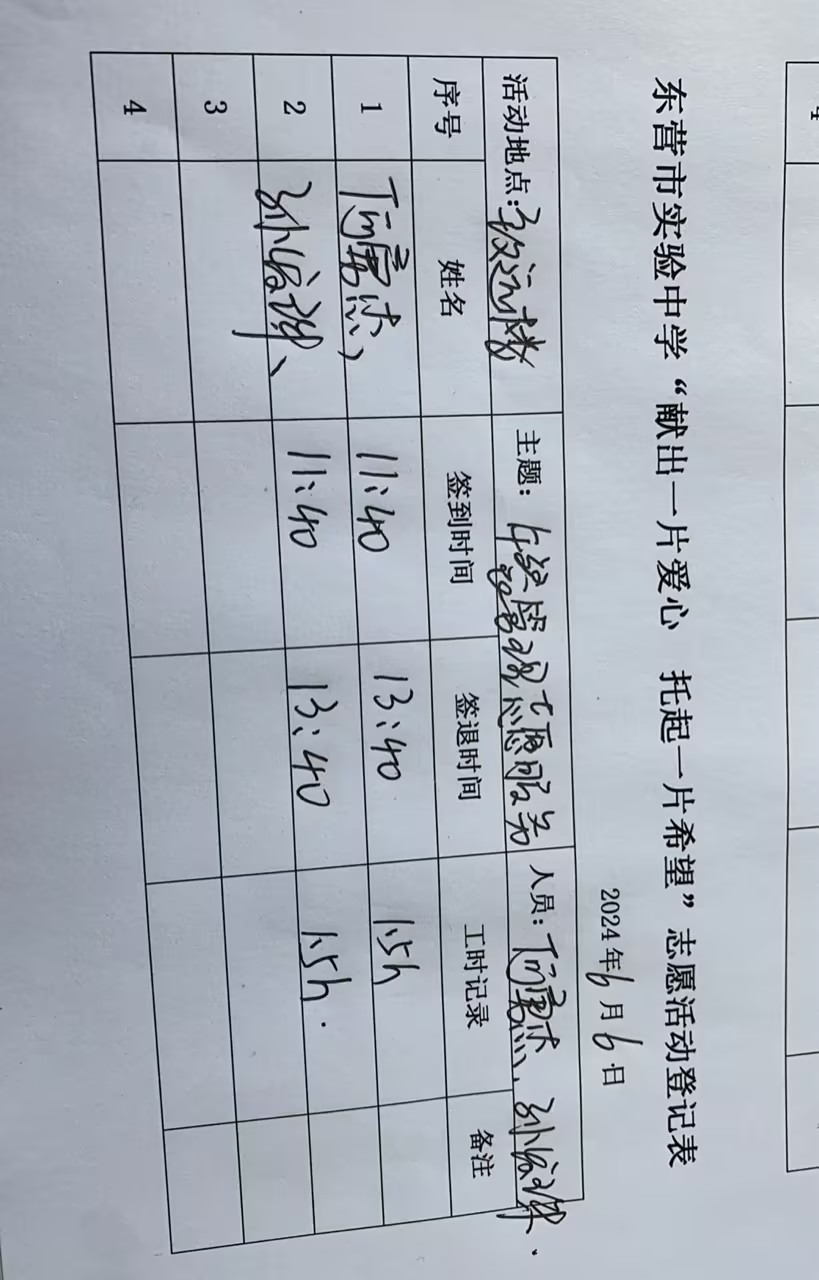 东营市实验中学“献出一片爱心 托起一片希望”志愿活动登记表
2024年6月6日
活动地点：致远楼 主题：午餐管理志愿服务 人员：
序号 姓名 签到时间 签退时间 工时记录 备注
1 11:40 13:40 1.5h
2 11:40 13:40 1.5h.
3
4